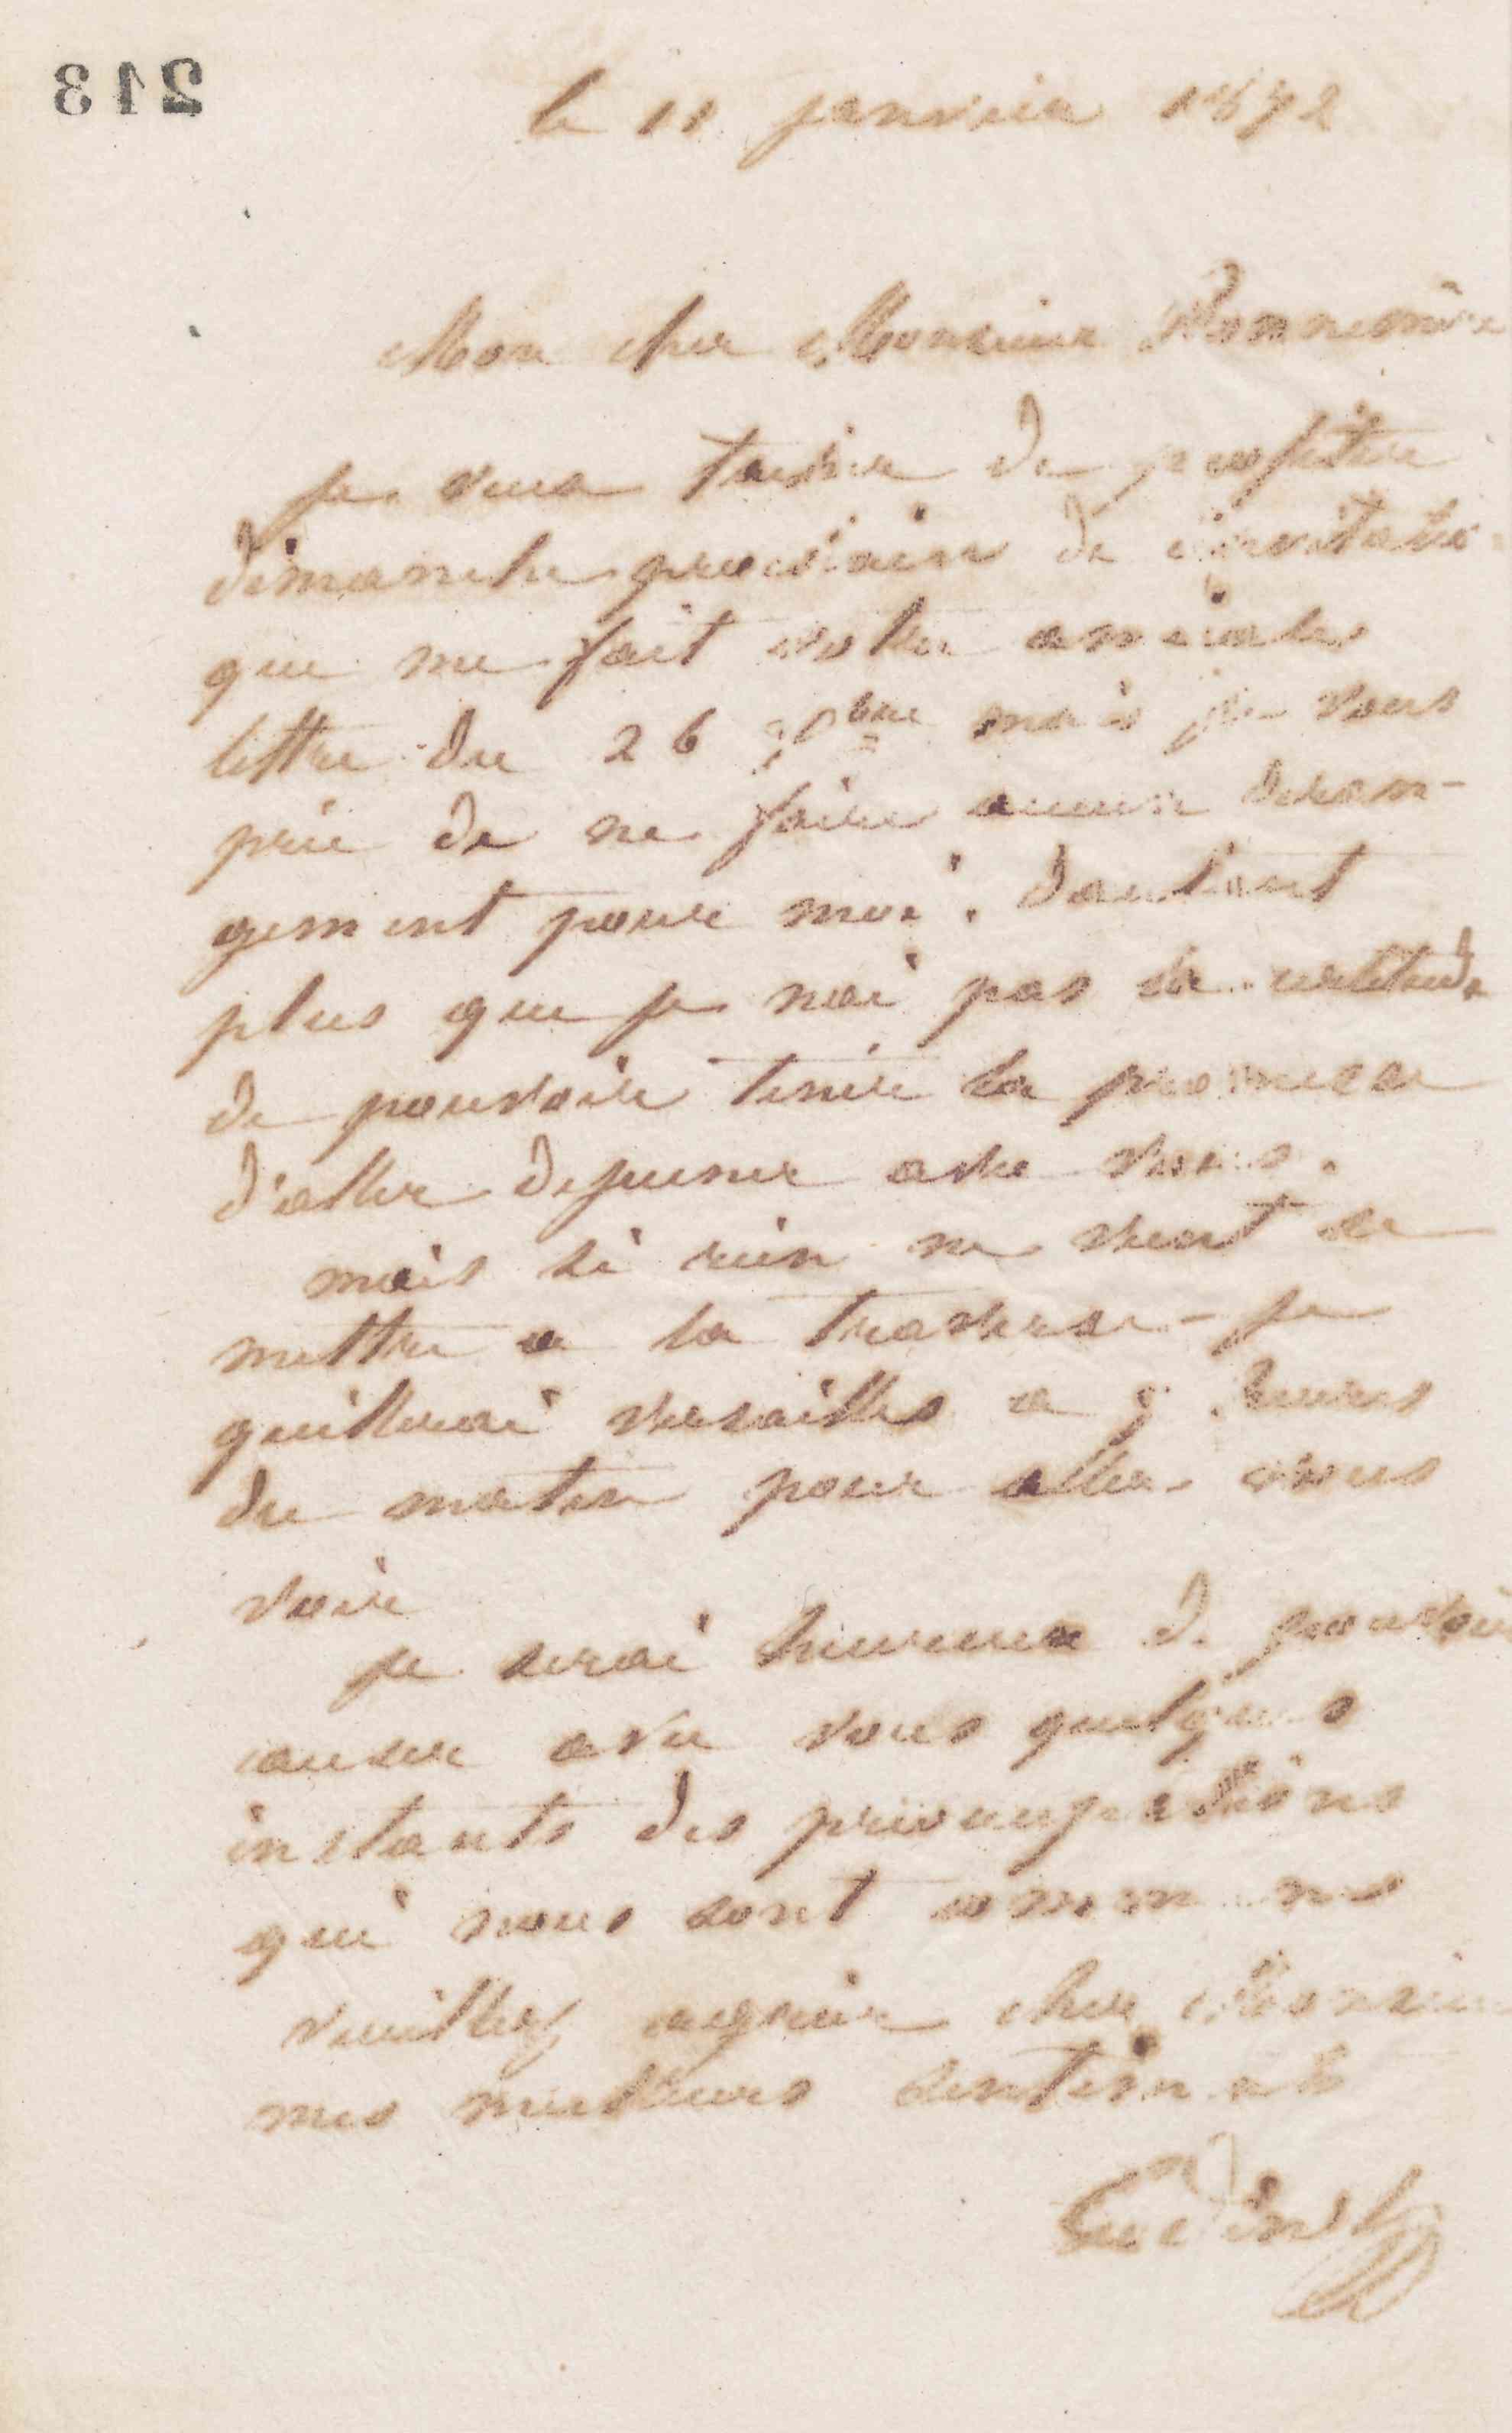 213
le 11 janvier 1872
Mon cher Monsieur Bonnemère
je veux tacher de profiter
dimanche prochain de invitatio
que me fait votre amicale
lettre du 26 Xbre mais je vous
prie de ne faire aucun deran-
gement pour moi. dautant
plus que je nai pas la certitude
de pouvoir tenir la promesse
d'aller dejeuner avec vous.
mais si rien ne vient se
mettre a la traverse - je
quitterai versailles a heures
du matin pour aller vous
voir
je serai heureux de pouvoir
causer avec vous quelques
instants des préoccupations
qui nous sont communes
veuillez agréer cher Monsieur
mes meilleurs sentiments
Godin